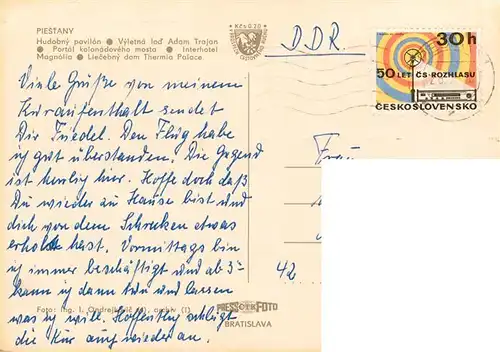 PIEŠŤANY
Hudobný pavilón ● Výletná loď Adam Trajan
● Portál kolonádového mosta ● Interhotel
Magnólia ● Liečebný dom Thermia Palace.
Kčs 0,20
Viele Grüße von meinem
Kuraufenthalt sendet
Dir Friedel. Den Flug habe
ich gut überstanden. Die Gegend
ist herrlich hier. Hoffe doch daß
Du wieder zu Hause bist und
dich von dem Schrecken etwas
erholt hast. Vormittags bin
ich immer beschäftigt und ab 3
kann ich dann tun und lassen
was ich will. Hoffentlich schlägt
die Kur auch wieder an.
Foto: Ing. I. archív (1)
PRESSFOTO
BRATISLAVA
D D R.
30 h
50 LET ČS. ROZHLASU
ČESKOSLOVENSKO
Frau
42